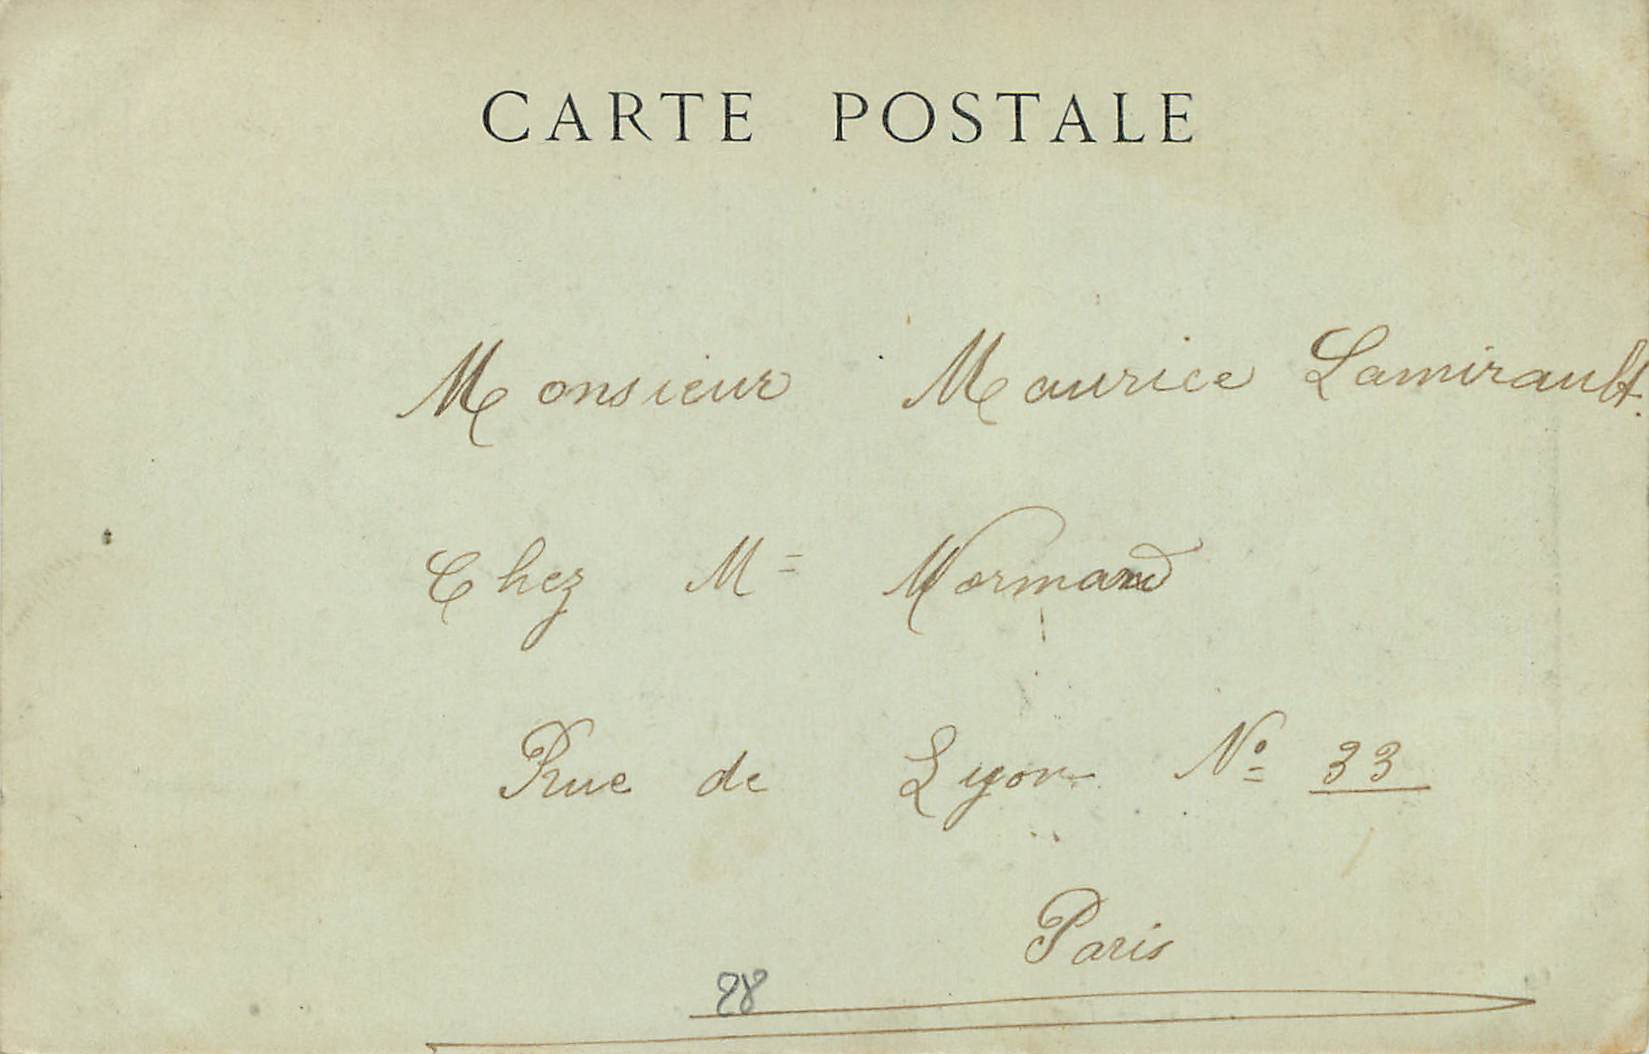 CARTE POSTALE
Monsieur Maurice Lamirault.
Chez M= Normand
Rue de Lyon Nº 33
Paris
28